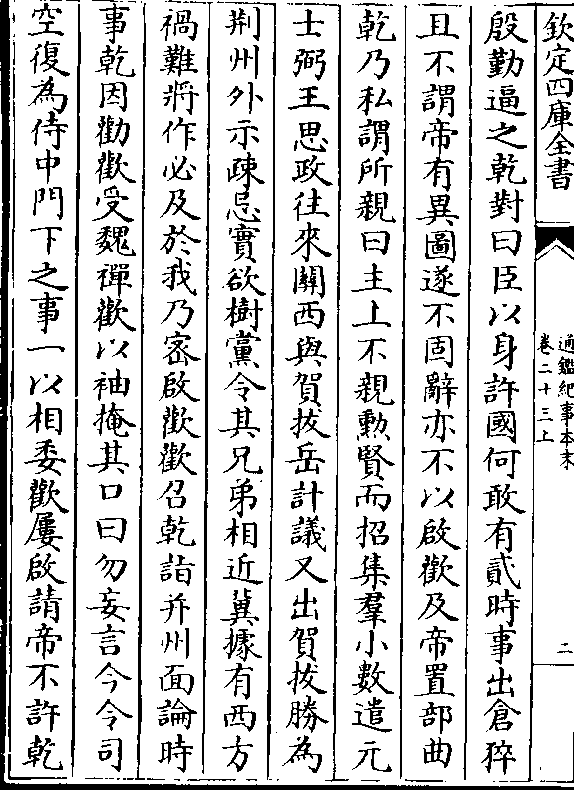 欽定四庫全書
通鑑紀事本末
卷二十三上
二
殷勤逼之乾對曰臣以身許國何敢有貳時事出倉猝
且不謂帝有異圖遂不固辭亦不以啟歡及帝置部曲
乾乃私謂所親曰主上不親勲賢而招集羣小數遣元
士弼王思政往來關西與賀拔岳計議又出賀拔勝為
荆州外示疎忌實欲樹黨令其兄弟相近冀據有西方
禍難將作必及於我乃宻啟歡歡召乾詣并州面論時
事乾因勸歡受魏禪歡以袖掩其口曰勿妄言今令司
空復為侍中門下之事一以相委歡屢啟請帝不許乾